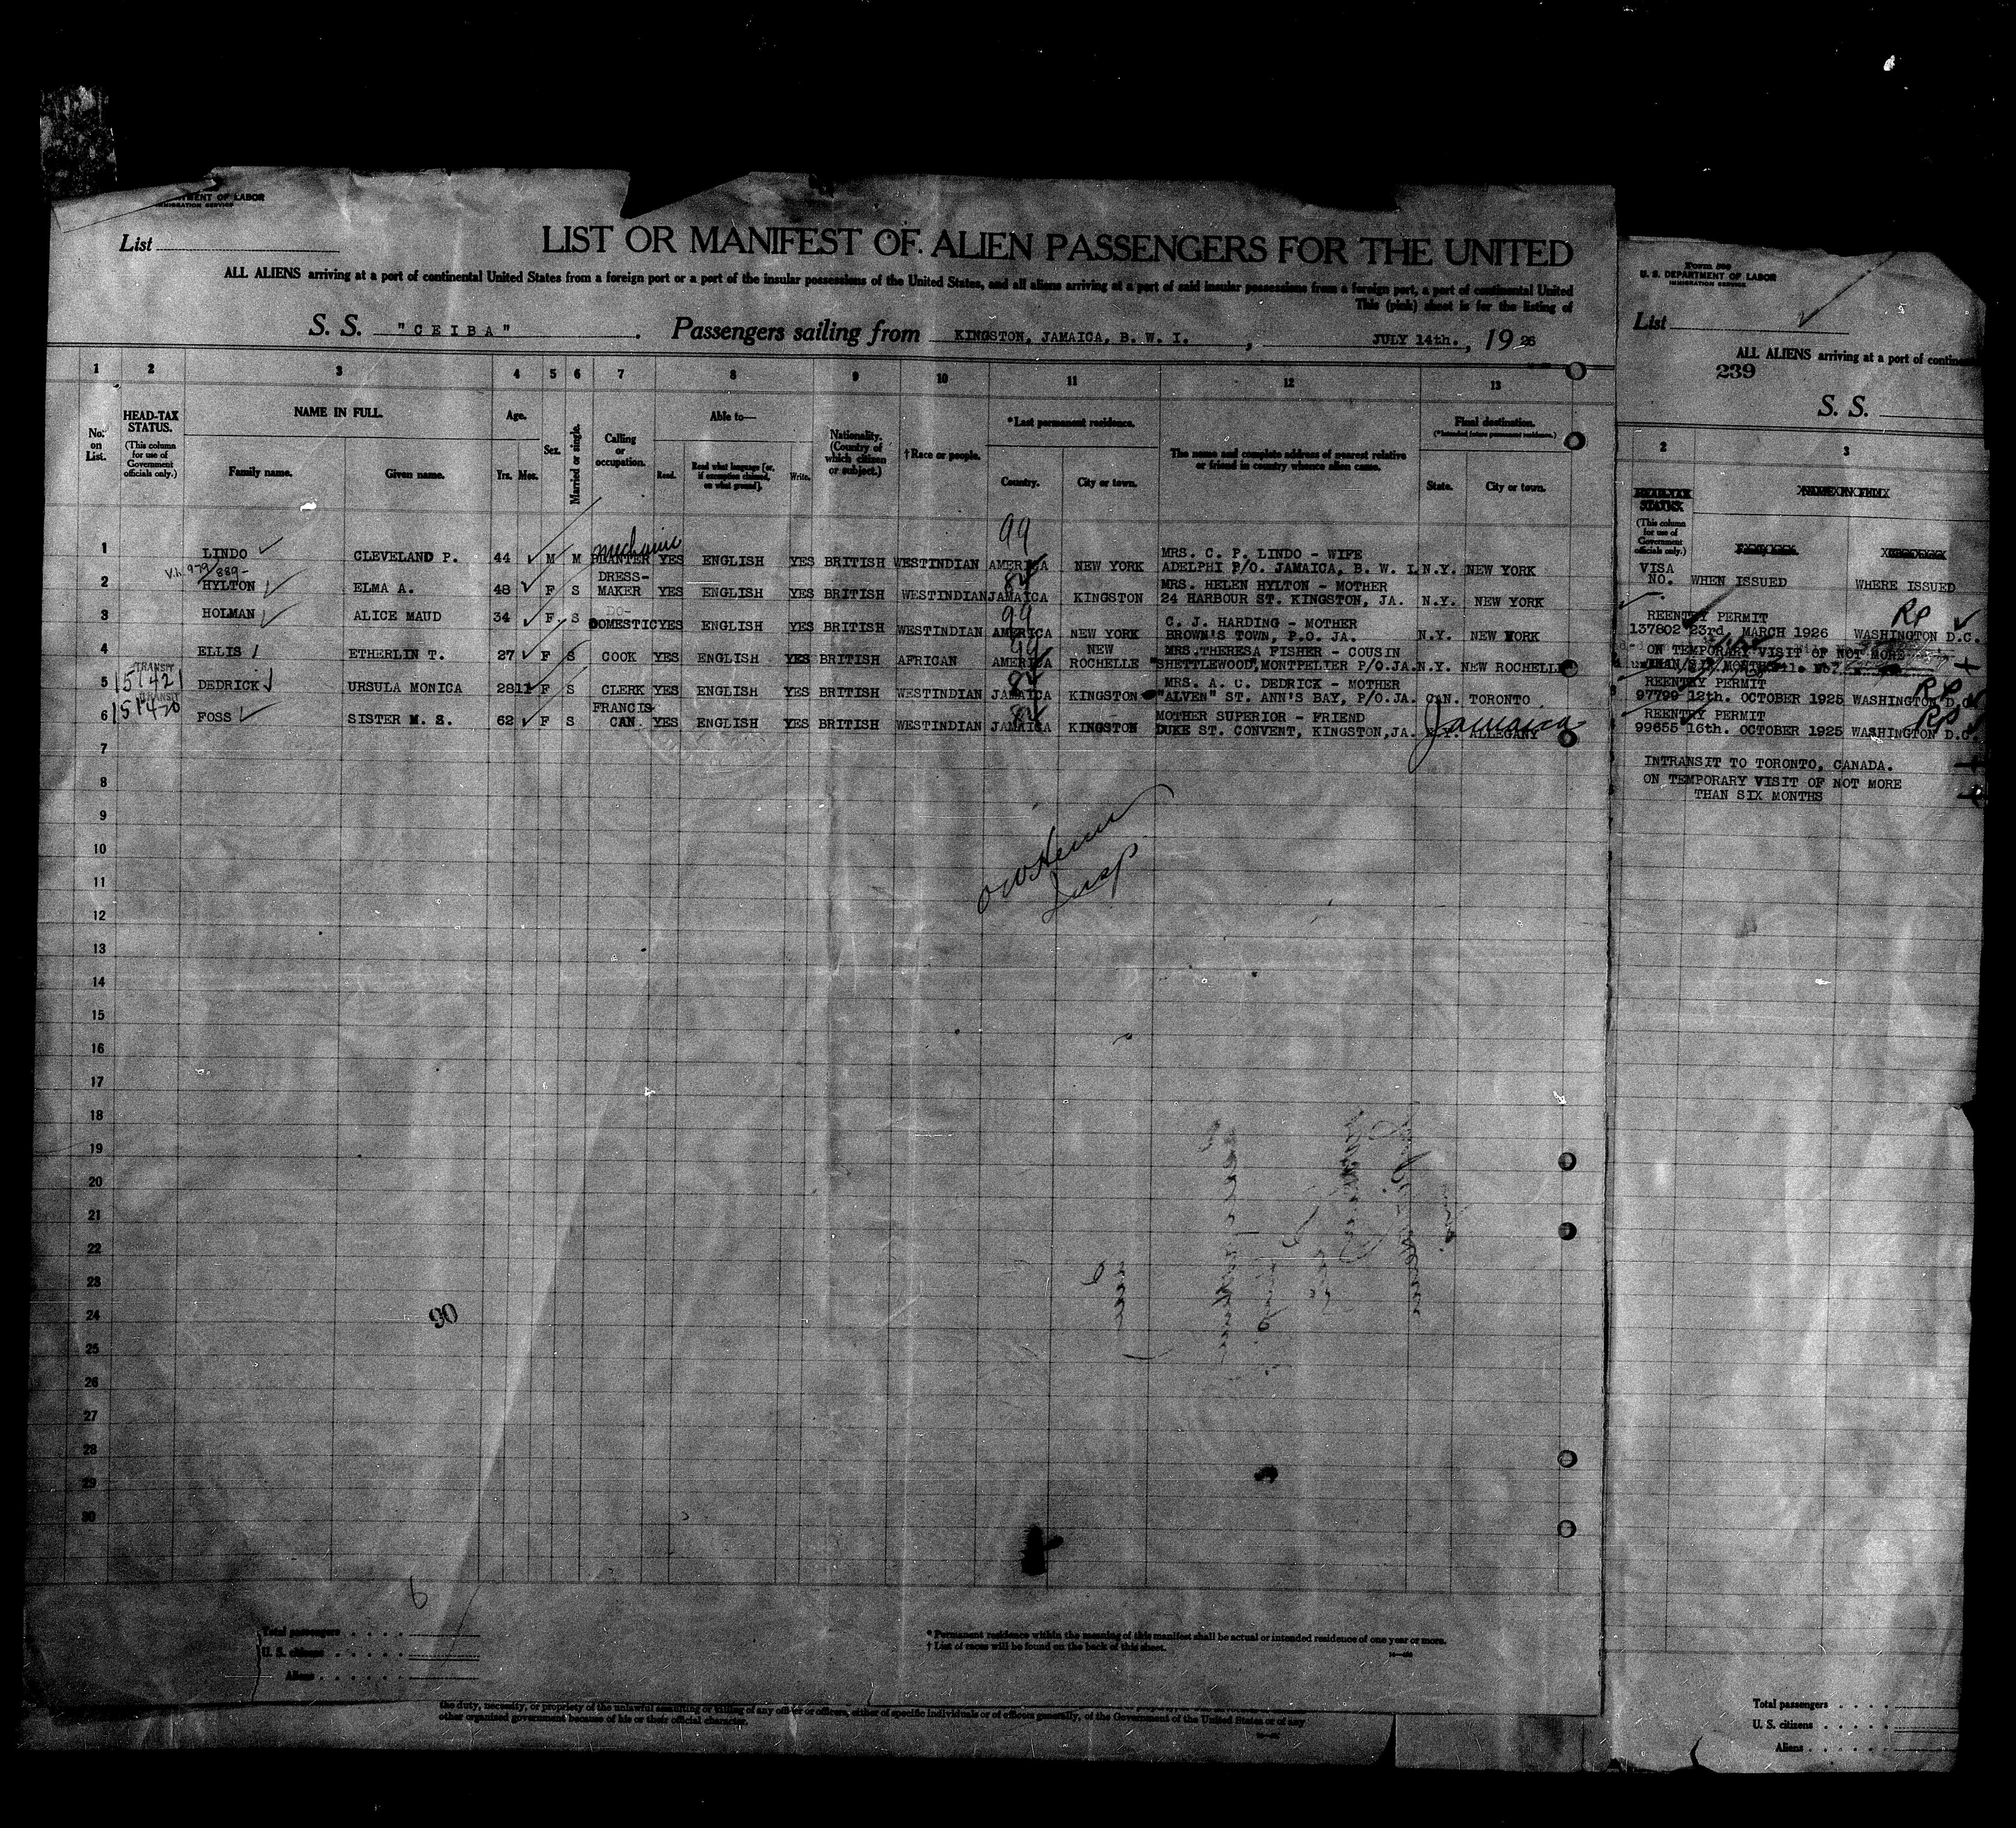 DEPARTMENT OF LABOR
IMMIGRATION SERVICE
List
LIST OR MANIFEST OF ALIEN PASSENGERS FOR THE UNITED
ALL ALIENS arriving at a port of continental United States from a foreign port or a port of the insular possessions of the United States, and all aliens arriving at a port of said insular possessions from a foreign port, a port of continental United
This (pink) sheet is for the listing of
S. S. "CEIBA". Passengers sailing from KINGSTON, JAMAICA, B. W. I., JULY 14th., 1926
1 2 3 4 5 6 7 8 9 10 11 12 13
No. on List.
HEAD-TAX STATUS.
(This column for use of Government officials only.)
NAME IN FULL.
Family name. Given name.
Age.
Yrs. Mos.
Sex.
Married or single.
Calling or occupation.
Able to—
Read. Read what language [or, if exemption claimed, on what ground]. Write.
Nationality. (Country of which citizen or subject.)
† Race or people.
*Last permanent residence.
Country. City or town.
The name and complete address of nearest relative or friend in country whence alien came.
Final destination.
(*Intended future permanent residence.)
State. City or town.
99
mechanic
1 LINDO CLEVELAND P. 44 M M PLANTER YES ENGLISH YES BRITISH WESTINDIAN AMERICA NEW YORK MRS. C. P. LINDO - WIFE
ADELPHI P/O. JAMAICA, B. W. I. N.Y. NEW YORK
84
2 HYLTON ELMA A. 48 F S DRESS-MAKER YES ENGLISH YES BRITISH WESTINDIAN JAMAICA KINGSTON MRS. HELEN HYLTON - MOTHER
24 HARBOUR ST. KINGSTON, JA. N.Y. NEW YORK
99
3 HOLMAN ALICE MAUD 34 F S DOMESTIC YES ENGLISH YES BRITISH WESTINDIAN AMERICA NEW YORK C. J. HARDING - MOTHER
BROWN'S TOWN, P.O. JA. N.Y. NEW YORK
99
4 ELLIS ETHERLIN T. 27 F S COOK YES ENGLISH YES BRITISH AFRICAN AMERICA NEW ROCHELLE MRS. THERESA FISHER - COUSIN
"SHETTLEWOOD", MONTPELIER P/O.JA. N.Y. NEW ROCHELLE
TRANSIT
84
5 DEDRICK URSULA MONICA 28 11 F S CLERK YES ENGLISH YES BRITISH WESTINDIAN JAMAICA KINGSTON MRS. A. C. DEDRICK - MOTHER
"ALVEN" ST. ANN'S BAY, P/O.JA. CAN. TORONTO
TRANSIT
84
6 FOSS SISTER M. S. 62 F S FRANCIS-CAN. YES ENGLISH YES BRITISH WESTINDIAN JAMAICA KINGSTON MOTHER SUPERIOR - FRIEND
DUKE ST. CONVENT, KINGSTON, JA. N.Y. ALLEGANY
Jamaica
7
8
9
10
11
12
13
14
15
16
17
18
19
20
21
22
23
24
25
26
27
28
29
30
Insp
90
6
Total passengers
U. S. citizens
Aliens
* Permanent residence within the meaning of this manifest shall be actual or intended residence of one year or more.
† List of races will be found on the back of this sheet.
the duty, necessity, or propriety of the unlawful assaulting or killing of any officer or officers, either of specific individuals or of officers generally, of the Government of the United States or of any
other organized government because of his or their official character.
Form 500
U. S. DEPARTMENT OF LABOR
IMMIGRATION SERVICE
List
ALL ALIENS arriving at a port of contine
239
S. S.
2 3
(This column for use of Government officials only.)
VISA NO. WHEN ISSUED WHERE ISSUED
REENTRY PERMIT RP
137802 23rd. MARCH 1926 WASHINGTON D.C.
ON TEMPORARY VISIT OF NOT MORE
THAN SIX MONTHS
REENTRY PERMIT RP
97799 12th. OCTOBER 1925 WASHINGTON D.C.
REENTRY PERMIT RP
99655 16th. OCTOBER 1925 WASHINGTON D.C.
INTRANSIT TO TORONTO, CANADA.
ON TEMPORARY VISIT OF NOT MORE
THAN SIX MONTHS
Total passengers
U. S. citizens
Aliens